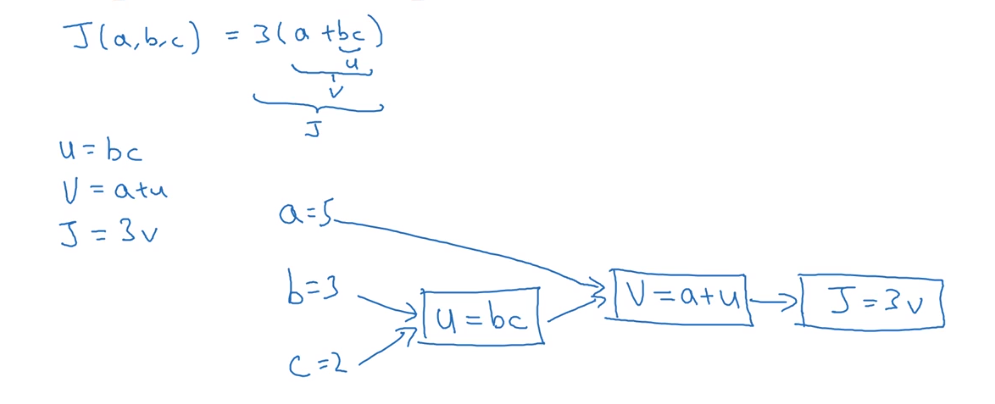 J(a,b,c) = 3(a+bc)
u
V
J
u = bc
V = a+u
J = 3v
a=5
b=3
c=2
u=bc
V=a+u
J=3v